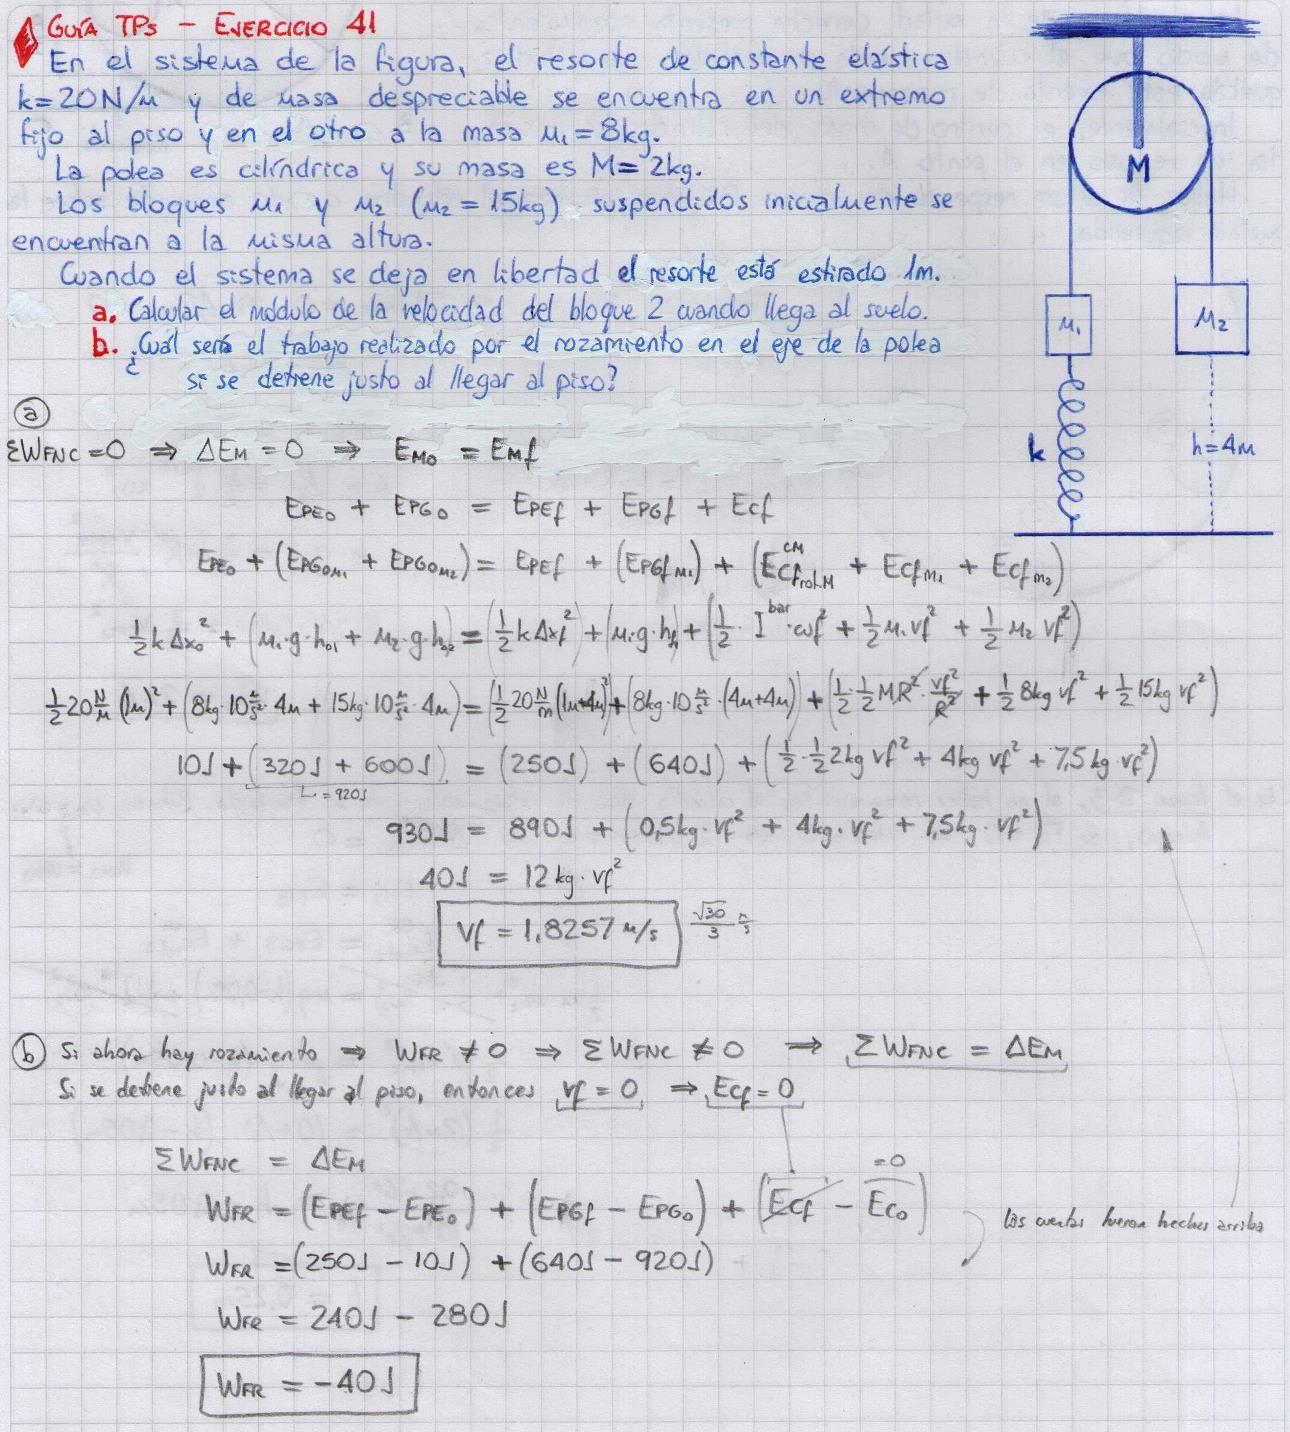 GUÍA TPs - EJERCICIO 41
En el sistema de la figura, el resorte de constante elástica
k=20N/m y de masa despreciable se encuentra en un extremo
fijo al piso y en el otro a la masa m₁=8kg.
La polea es cilíndrica y su masa es M=2kg.
Los bloques m₁ y m₂ (m₂=15kg) suspendidos inicialmente se
encuentran a la misma altura.
Cuando el sistema se deja en libertad el resorte está estirado 1m.
a. Calcular el módulo de la velocidad del bloque 2 cuando llega al suelo.
b. ¿Cuál será el trabajo realizado por el rozamiento en el eje de la polea
si se detiene justo al llegar al piso?
M
m₁
m₂
k
h=4m
ⓐ
ΣW_FNC=0 ⇒ ΔE_M=0 ⇒ E_M₀ = E_Mf
E_PE₀ + E_PG₀ = E_PEf + E_PGf + E_Cf
E_PE₀ + (E_PG₀m₁ + E_PG₀m₂) = E_PEf + (E_PGfm₁) + (E_Cf rot.M ^CM + E_Cfm₁ + E_Cfm₂)
½kΔx₀² + (m₁·g·h₀₁ + m₂·g·h₀₂) = (½kΔxf²) + (m₁·g·hf₁) + (½·I^bar·ωf² + ½m₁vf² + ½m₂vf²)
½20N/m(1m)² + (8kg·10m/s²·4m + 15kg·10m/s²·4m) = (½20N/m(1m+4m)²) + (8kg·10m/s²·(4m+4m)) + (½·½MR²·vf²/R² + ½8kg vf² + ½15kg vf²)
10J + (320J + 600J) = (250J) + (640J) + (½·½2kg vf² + 4kg vf² + 7,5kg·vf²)
=920J
930J = 890J + (0,5kg·vf² + 4kg·vf² + 7,5kg·vf²)
40J = 12kg·vf²
vf = 1,8257 m/s √30/3 m/s
ⓑ Si ahora hay rozamiento ⇒ W_FR ≠ 0 ⇒ ΣW_FNC ≠ 0 ⇒ ΣW_FNC = ΔE_M
Si se detiene justo al llegar al piso, entonces vf = 0 ⇒ E_Cf = 0
ΣW_FNC = ΔE_M
=0
W_FR = (E_PEf - E_PE₀) + (E_PGf - E_PG₀) + (E_Cf - E_C₀)
las cuentas fueron hechas arriba
W_FR = (250J - 10J) + (640J - 920J)
W_FR = 240J - 280J
W_FR = -40J